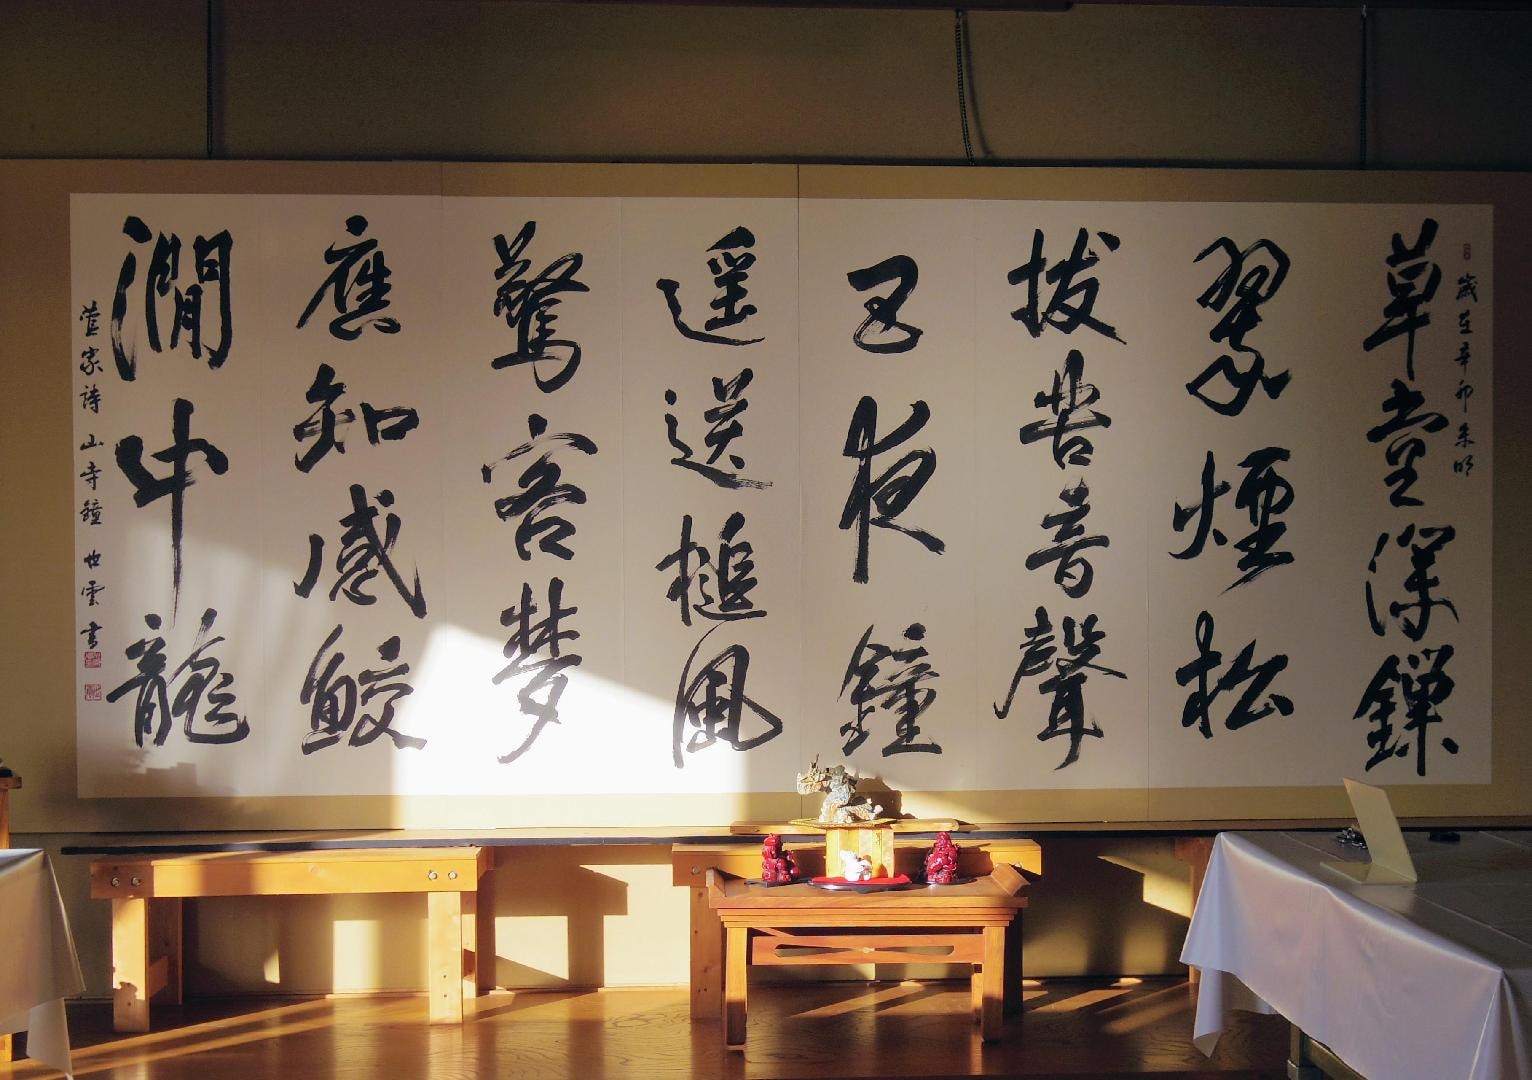 歳在辛卯朱明
草堂深鏁
翠煙松
拔苦音聲
五夜鐘
遥送槌風
驚客夢
應知感鮫
澗中龍
菅家詩 山寺鐘 世雲書